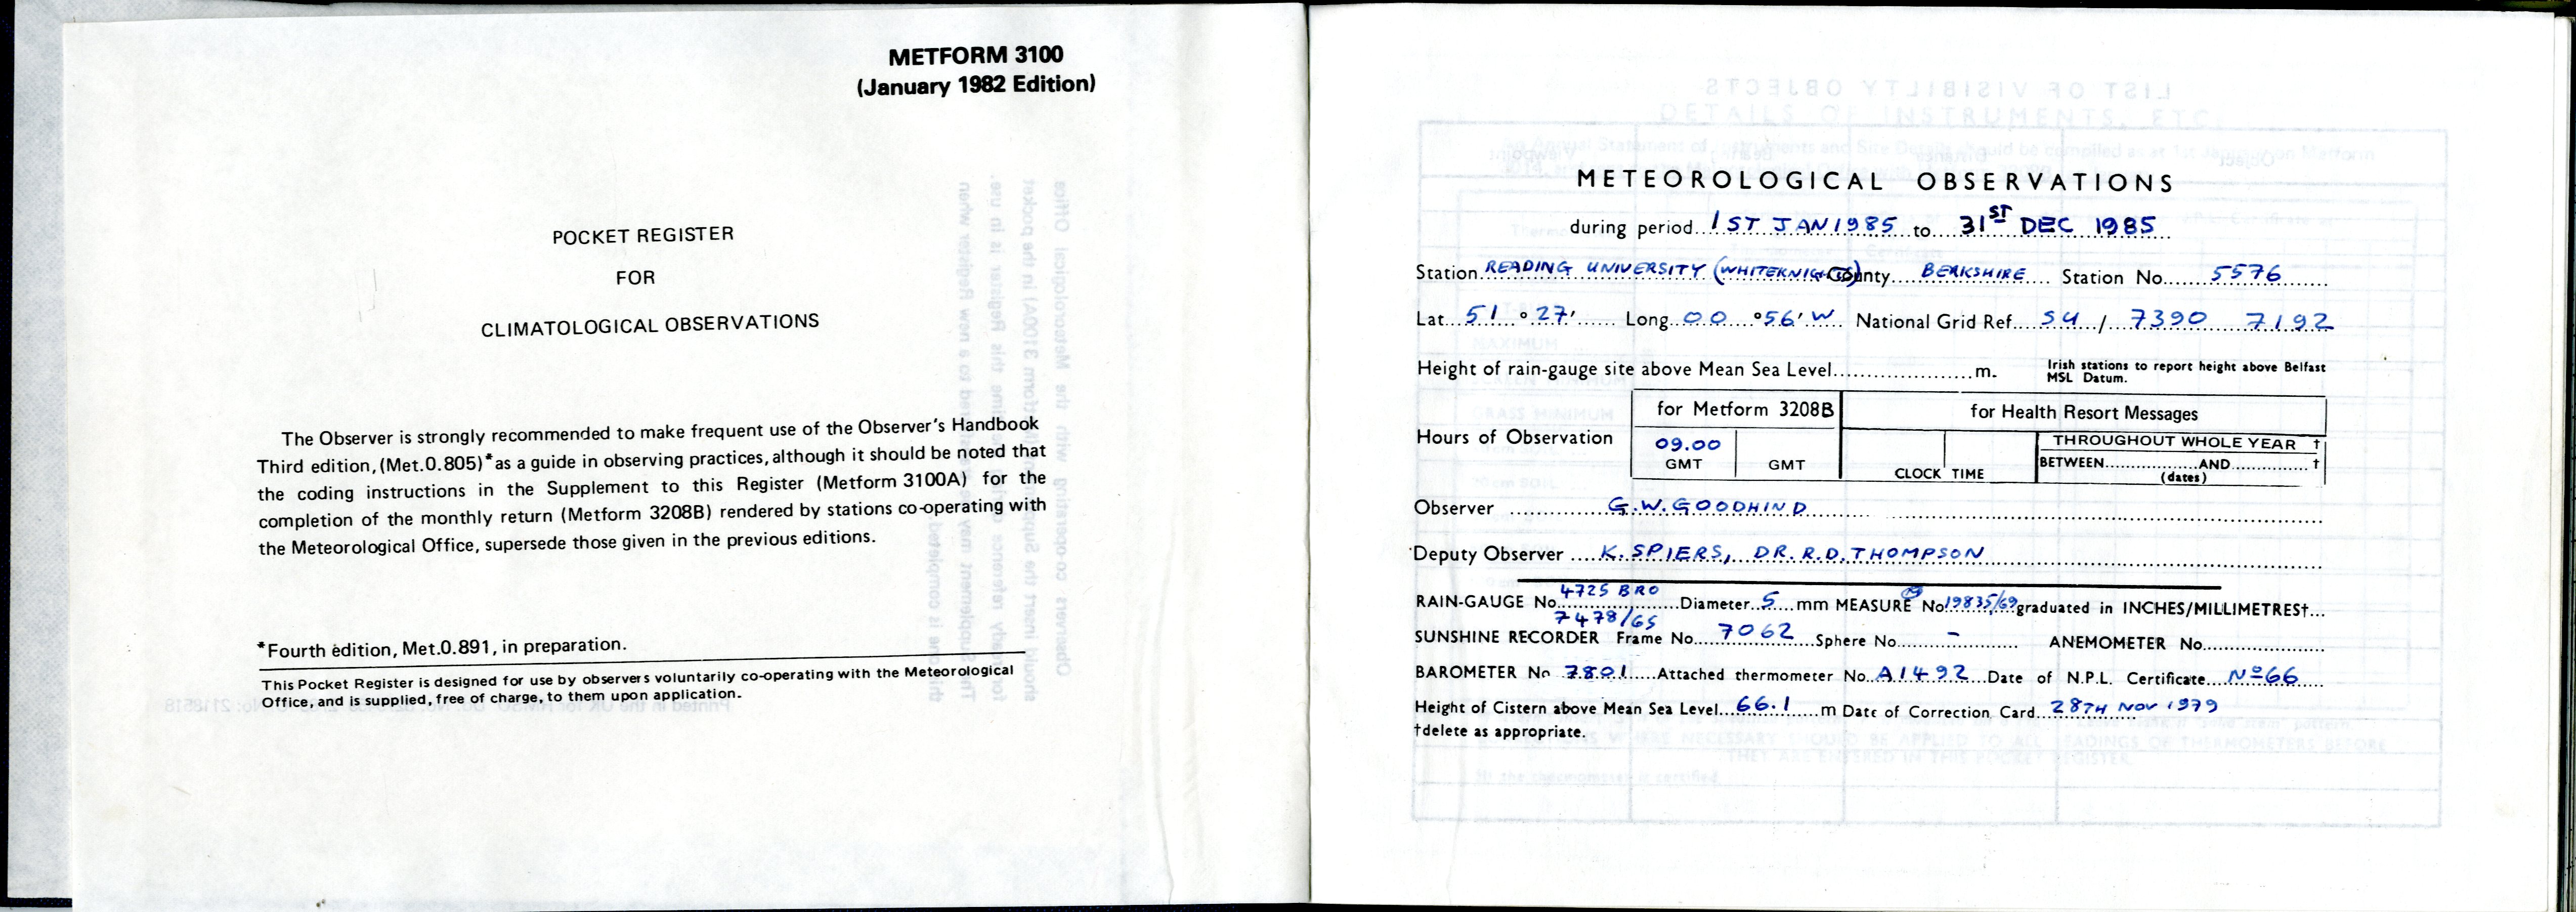 METFORM 3100
(January 1982 Edition)
POCKET REGISTER
FOR
CLIMATOLOGICAL OBSERVATIONS
The Observer is strongly recommended to make frequent use of the Observer's Handbook
Third edition, (Met.0.805)* as a guide in observing practices, although it should be noted that
the coding instructions in the Supplement to this Register (Metform 3100A) for the
completion of the monthly return (Metform 3208B) rendered by stations co-operating with
the Meteorological Office, supersede those given in the previous editions.
*Fourth edition, Met.0.891, in preparation.
This Pocket Register is designed for use by observers voluntarily co-operating with the Meteorological
Office, and is supplied, free of charge, to them upon application.
METEOROLOGICAL OBSERVATIONS
during period 1ST JAN 1985 to 31ST DEC 1985
Station READING UNIVERSITY (WHITEKNIGHTS) County BERKSHIRE Station No. 5576
Lat. 51 ° 27' Long. 00 ° 56' W National Grid Ref. SU / 7390 7192
Height of rain-gauge site above Mean Sea Level m. Irish stations to report height above Belfast
MSL Datum.
for Metform 3208B for Health Resort Messages
Hours of Observation 09.00 GMT GMT CLOCK TIME THROUGHOUT WHOLE YEAR †
BETWEEN AND †
(dates)
Observer G.W. GOODHIND
Deputy Observer K. SPIERS, DR. R.D. THOMPSON
4725 BRO
RAIN-GAUGE No. Diameter 5 mm MEASURE No 19835/69 graduated in INCHES/MILLIMETRES†
7478/65
SUNSHINE RECORDER Frame No. 7062 Sphere No. - ANEMOMETER No.
BAROMETER No 7801 Attached thermometer No. A1492 Date of N.P.L. Certificate Nº66
Height of Cistern above Mean Sea Level 66.1 m Date of Correction Card 28TH NOV 1979
†delete as appropriate.